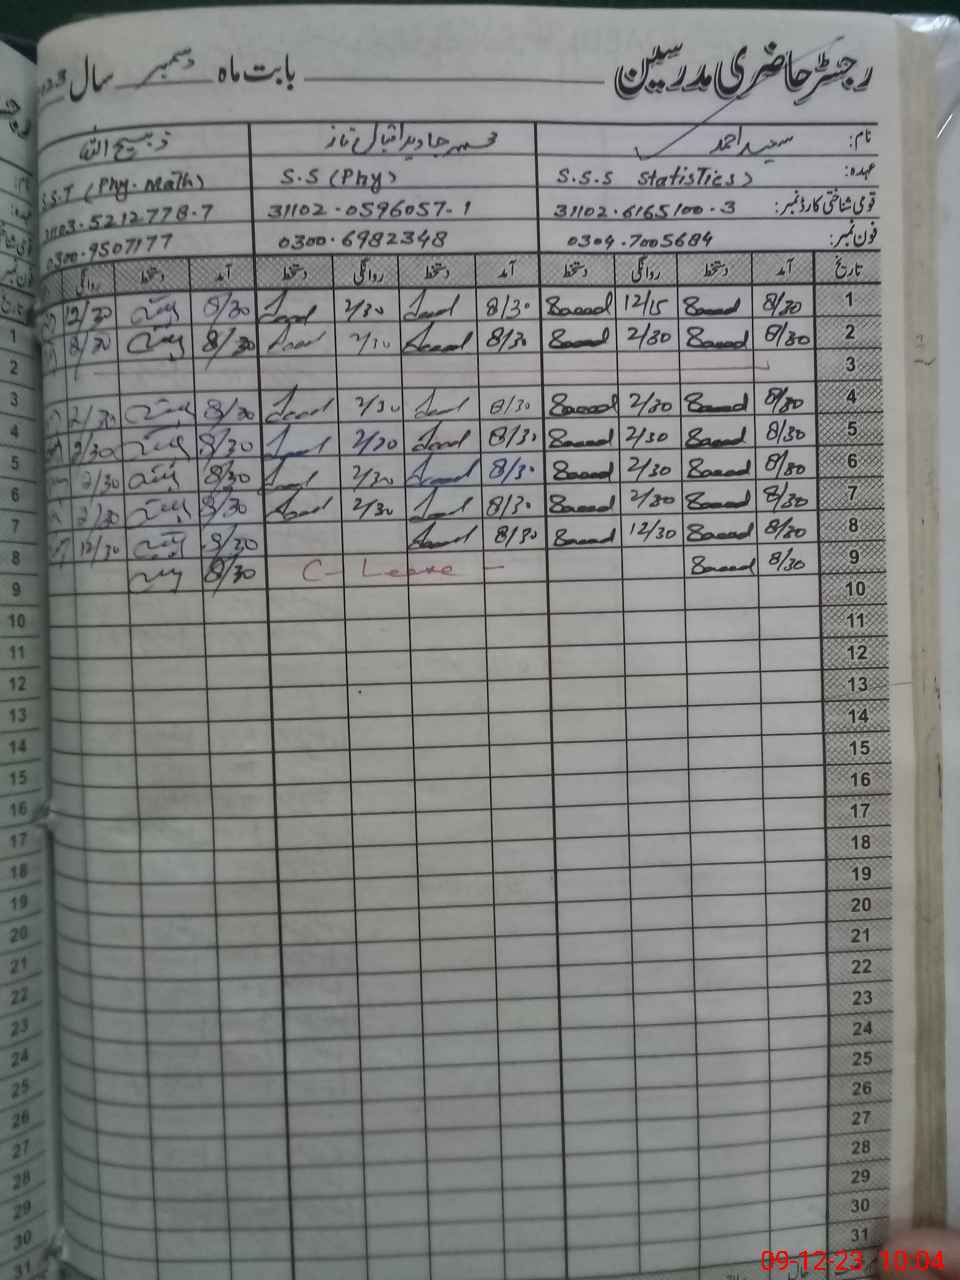 رجسٹر حاضری مدرسین بابت ماہ دسمبر سال
نام: سعید احمد محمد جاوید اقبال ناز ذبیح اللہ
عہدہ: S.S.S Statistics) S.S (Phy) S.S.T (Phy. Math)
قومی شناختی کارڈ نمبر: 31102.6165100.3 31102.0596057-1 31103.5212778.7
فون نمبر: 0304.7005684 0300.6982348 0300.9507177
تاریخ آمد دستخط روانگی دستخط آمد دستخط روانگی دستخط آمد دستخط روانگی
1 8/30 Saeed 12/15 Saeed 8/30 2/30 8/30 12/30
2 8/30 Saeed 2/30 Saeed 8/30 2/30 8/30
3
4 8/30 Saeed 2/30 Saeed 8/30 2/30 8/30 2/30
5 8/30 Saeed 2/30 Saeed 8/30 2/30 8/30 2/30
6 8/30 Saeed 2/30 Saeed 8/30 2/30 8/30 2/30
7 8/30 Saeed 2/30 Saeed 8/30 2/30 8/30 2/30
8 8/30 Saeed 12/30 Saeed 8/30 8/30 12/30
9 8/30 Saeed C- Leave - 8/30
10
11
12
13
14
15
16
17
18
19
20
21
22
23
24
25
26
27
28
29
30
31
09-12-23 10:04